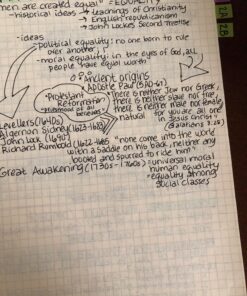 men are created equal" = EQUALITY
-historical ideas → teachings of Christianity
→ English republicanism
→ John Locke's Second Treatise
-ideas
political equality: no one born to rule
over another
-moral equality: in the eyes of God, all
people have equal worth
Ancient origins
Apostle Paul (5 AD-67)
"There is neither Jew nor Greek,
there is neither slave nor free,
there is neither male nor female
for you are all one
in Jesus Christ"
(Galatians 3:28)
Protestant
Reformation
priesthood of all
believers
natural
Levellers (1640s)
Algernon Sidney (1623-1683)
John Lock (1690)
Richard Rumbold (1622-1685
"none come into the world
with a saddle on his back, neither any
booted and spurred to ride him"
Great Awakening (1730s-1760s) = universal moral
human equality
= equality among
social classes